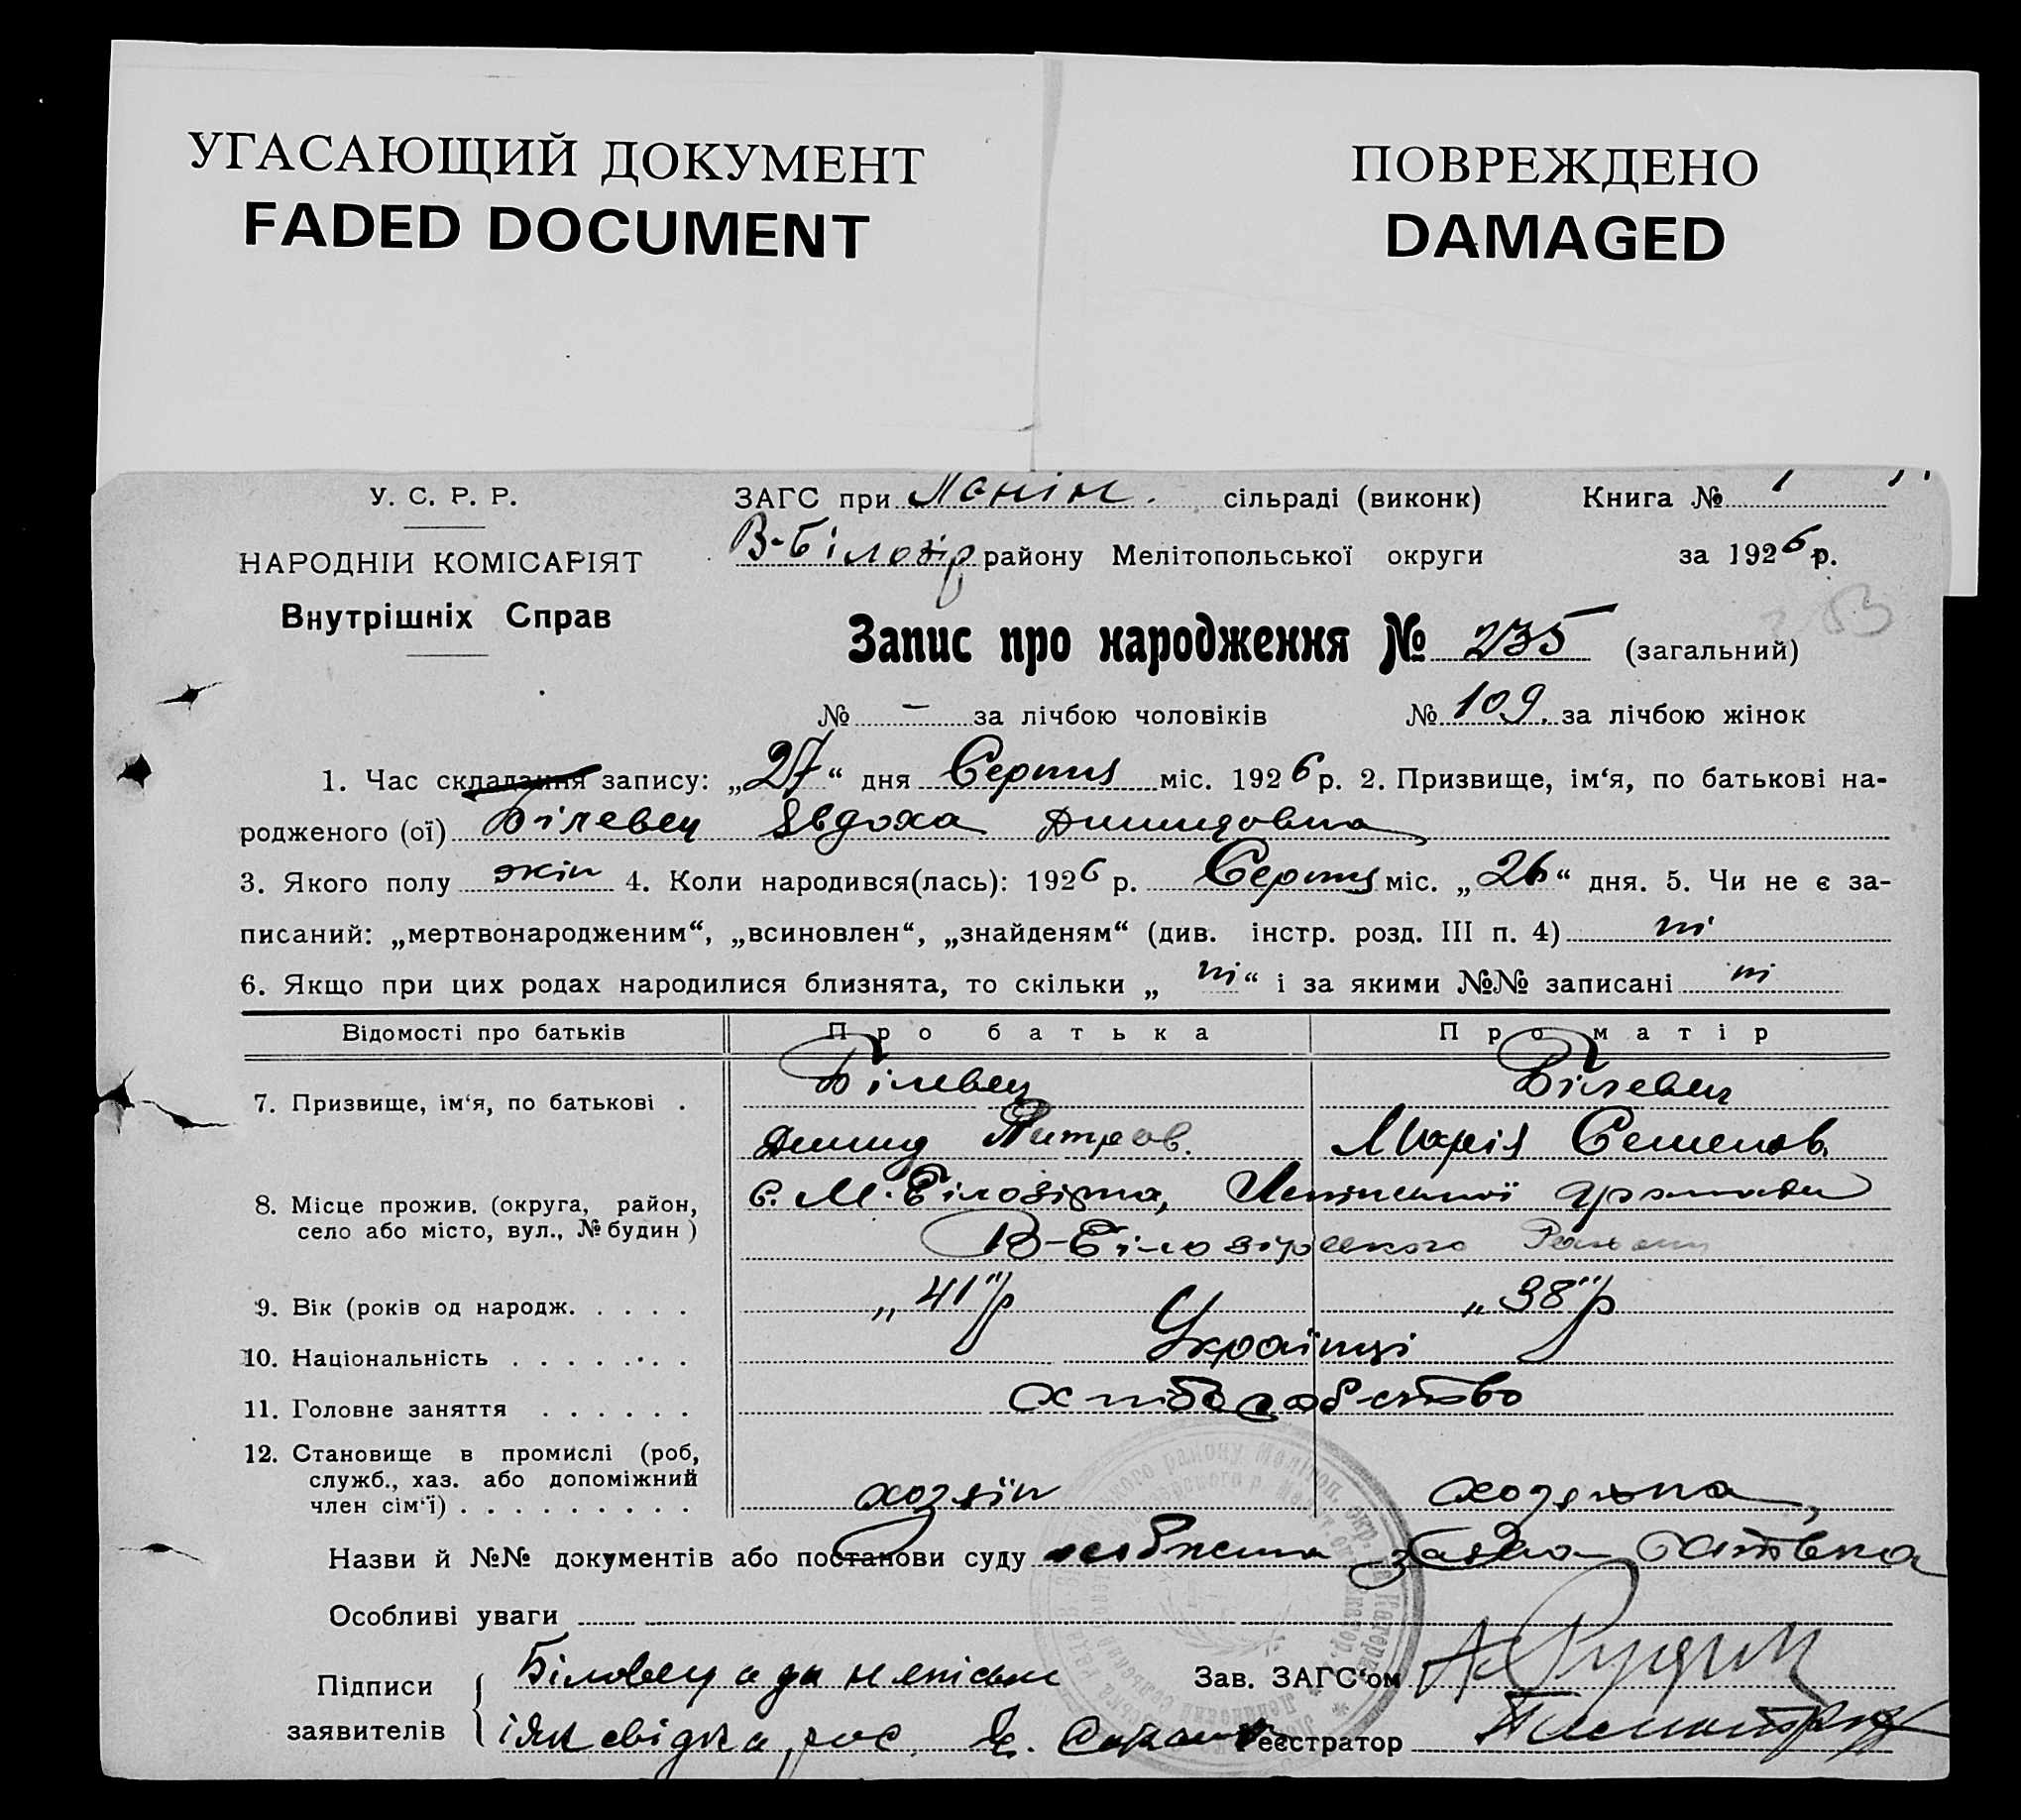 УГАСАЮЩИЙ ДОКУМЕНТ
FADED DOCUMENT
ПОВРЕЖДЕНО
DAMAGED
У. С. Р. Р.
НАРОДНІЙ КОМІСАРІЯТ
Внутрішніх Справ
ЗАГС при Ленін. сільраді (виконк) Книга № 1
В-Білозір району Мелітопольської округи за 1926 р.
Запис про народження № 235 (загальний)
№ — за лічбою чоловіків № 109. за лічбою жінок
1. Час складання запису: „27“ дня Серпня міс. 1926 р. 2. Призвище, ім‘я, по батькові на-
родженого (ої) Білевец Явдоха Димидовна
3. Якого полу жін 4. Коли народився(лась): 1926 р. Серпня міс. „26“ дня. 5. Чи не є за-
писаний: „мертвонародженим“, „всиновлен“, „знайденям“ (див. інстр. розд. III п. 4) ні
6. Якщо при цих родах народилися близнята, то скільки „ні“ і за якими №№ записані ні
Відомості про батьків Про батька Про матір
7. Призвище, ім‘я, по батькові . Білевец Білевец
Димид Питров. Марія Семенов.
8. Місце прожив. (округа, район,
село або місто, вул., № будин)
с. М. Білозірка, Ленінської громади
В-Білозірського Району
9. Вік (років од народж. . . . . „41“ р „38“ р
10. Національність . . . . . . . . Українці
11. Головне заняття . . . . . . хліборобство
12. Становище в промислі (роб,
служб., хаз. або допоміжний
член сім‘ї) . . . . . . . . . хозяїн хозяйка,
Назви й №№ документів або постанови суду особиста заява
Особливі уваги
Підписи
заявителів
Білевец а за
свідка рос.
Зав. ЗАГС‘ом
Реєстратор